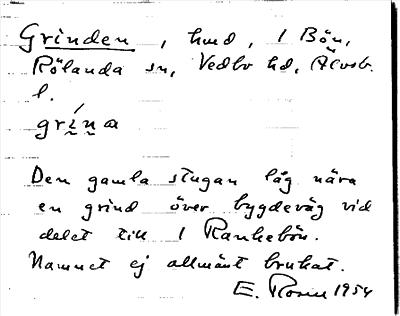 Grinden, hmd, 1 Bön,
Rölanda sn, Vedbo hd, Älvsb.
l.
grína
Den gamla stugan låg nära
en grind över bygdeväg vid
delet till 1 Rankebön.
Namnet ej allmänt brukat.
E. Rosen 1954